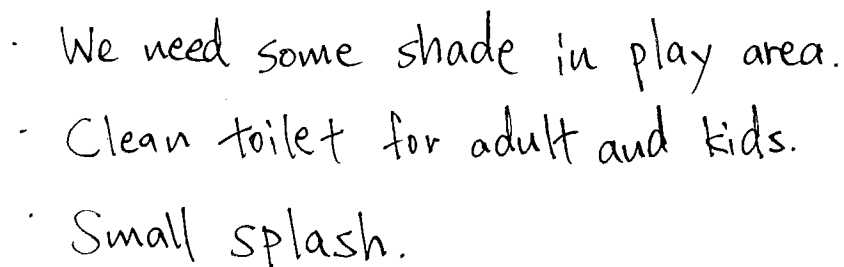 · We need some shade in play area.
· Clean toilet for adult and kids.
· Small splash.